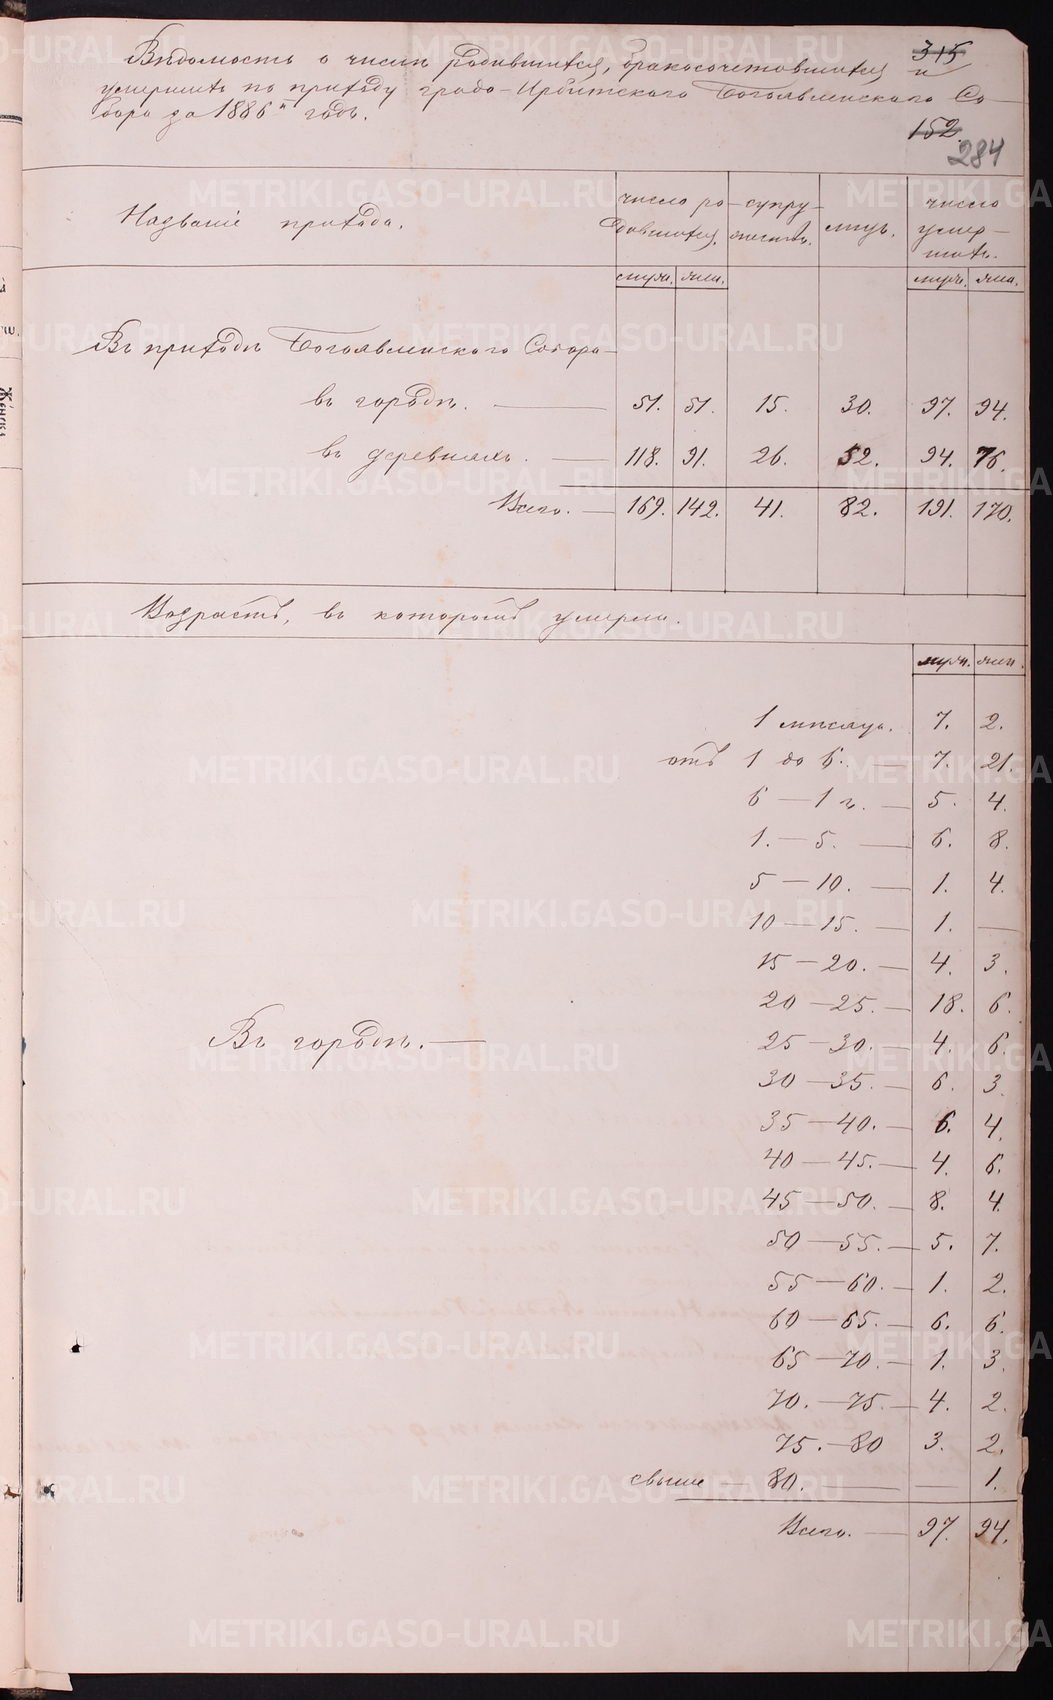 Вѣдомость о числѣ родившихся, бракосочетавшихся и
умершихъ по приходу градо-Ирбитскаго Богоявленскаго Со-
бора за 1886й годъ.
315
152.
284
Названіе прихода.
число ро-
дившихся.
супру-
жествъ.
лицъ.
число
умер-
шихъ.
муж. жен. муж. жен.
Въ приходѣ Богоявленскаго Собора
въ городѣ. — 51. 51. 15. 30. 97. 94.
въ деревняхъ. — 118. 91. 26. 52. 94. 76.
Всего. — 169. 142. 41. 82. 191. 170.
Возрастъ, въ которомъ умерли.
муж. жен.
1 мѣсяца. 7. 2.
отъ 1 до 6. — 7. 21.
6 — 1 г. — 5. 4.
1. — 5. — 6. 8.
5 — 10. — 1. 4.
10 — 15. — 1. —
15 — 20. — 4. 3.
20 — 25. — 18. 6.
Въ городѣ. —
25 — 30. — 4. 6.
30 — 35. — 6. 3.
35 — 40. — 6. 4.
40 — 45. — 4. 6.
45 — 50. — 8. 4.
50 — 55. — 5. 7.
55 — 60. — 1. 2.
60 — 65. — 6. 6.
65 — 70. — 1. 3.
70. — 75. — 4. 2.
75. — 80 3. 2.
свыше — 80. — — 1.
Всего. — 97. 94.
METRIKI.GASO-URAL.RU